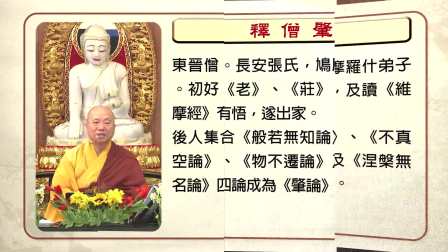 釋僧肇
東晉僧。長安張氏，鳩摩羅什弟子
。初好《老》、《莊》，及讀《維
摩經》有悟，遂出家。
後人集合《般若無知論》、《不真
空論》、《物不遷論》及《涅槃無
名論》四論成為《肇論》。